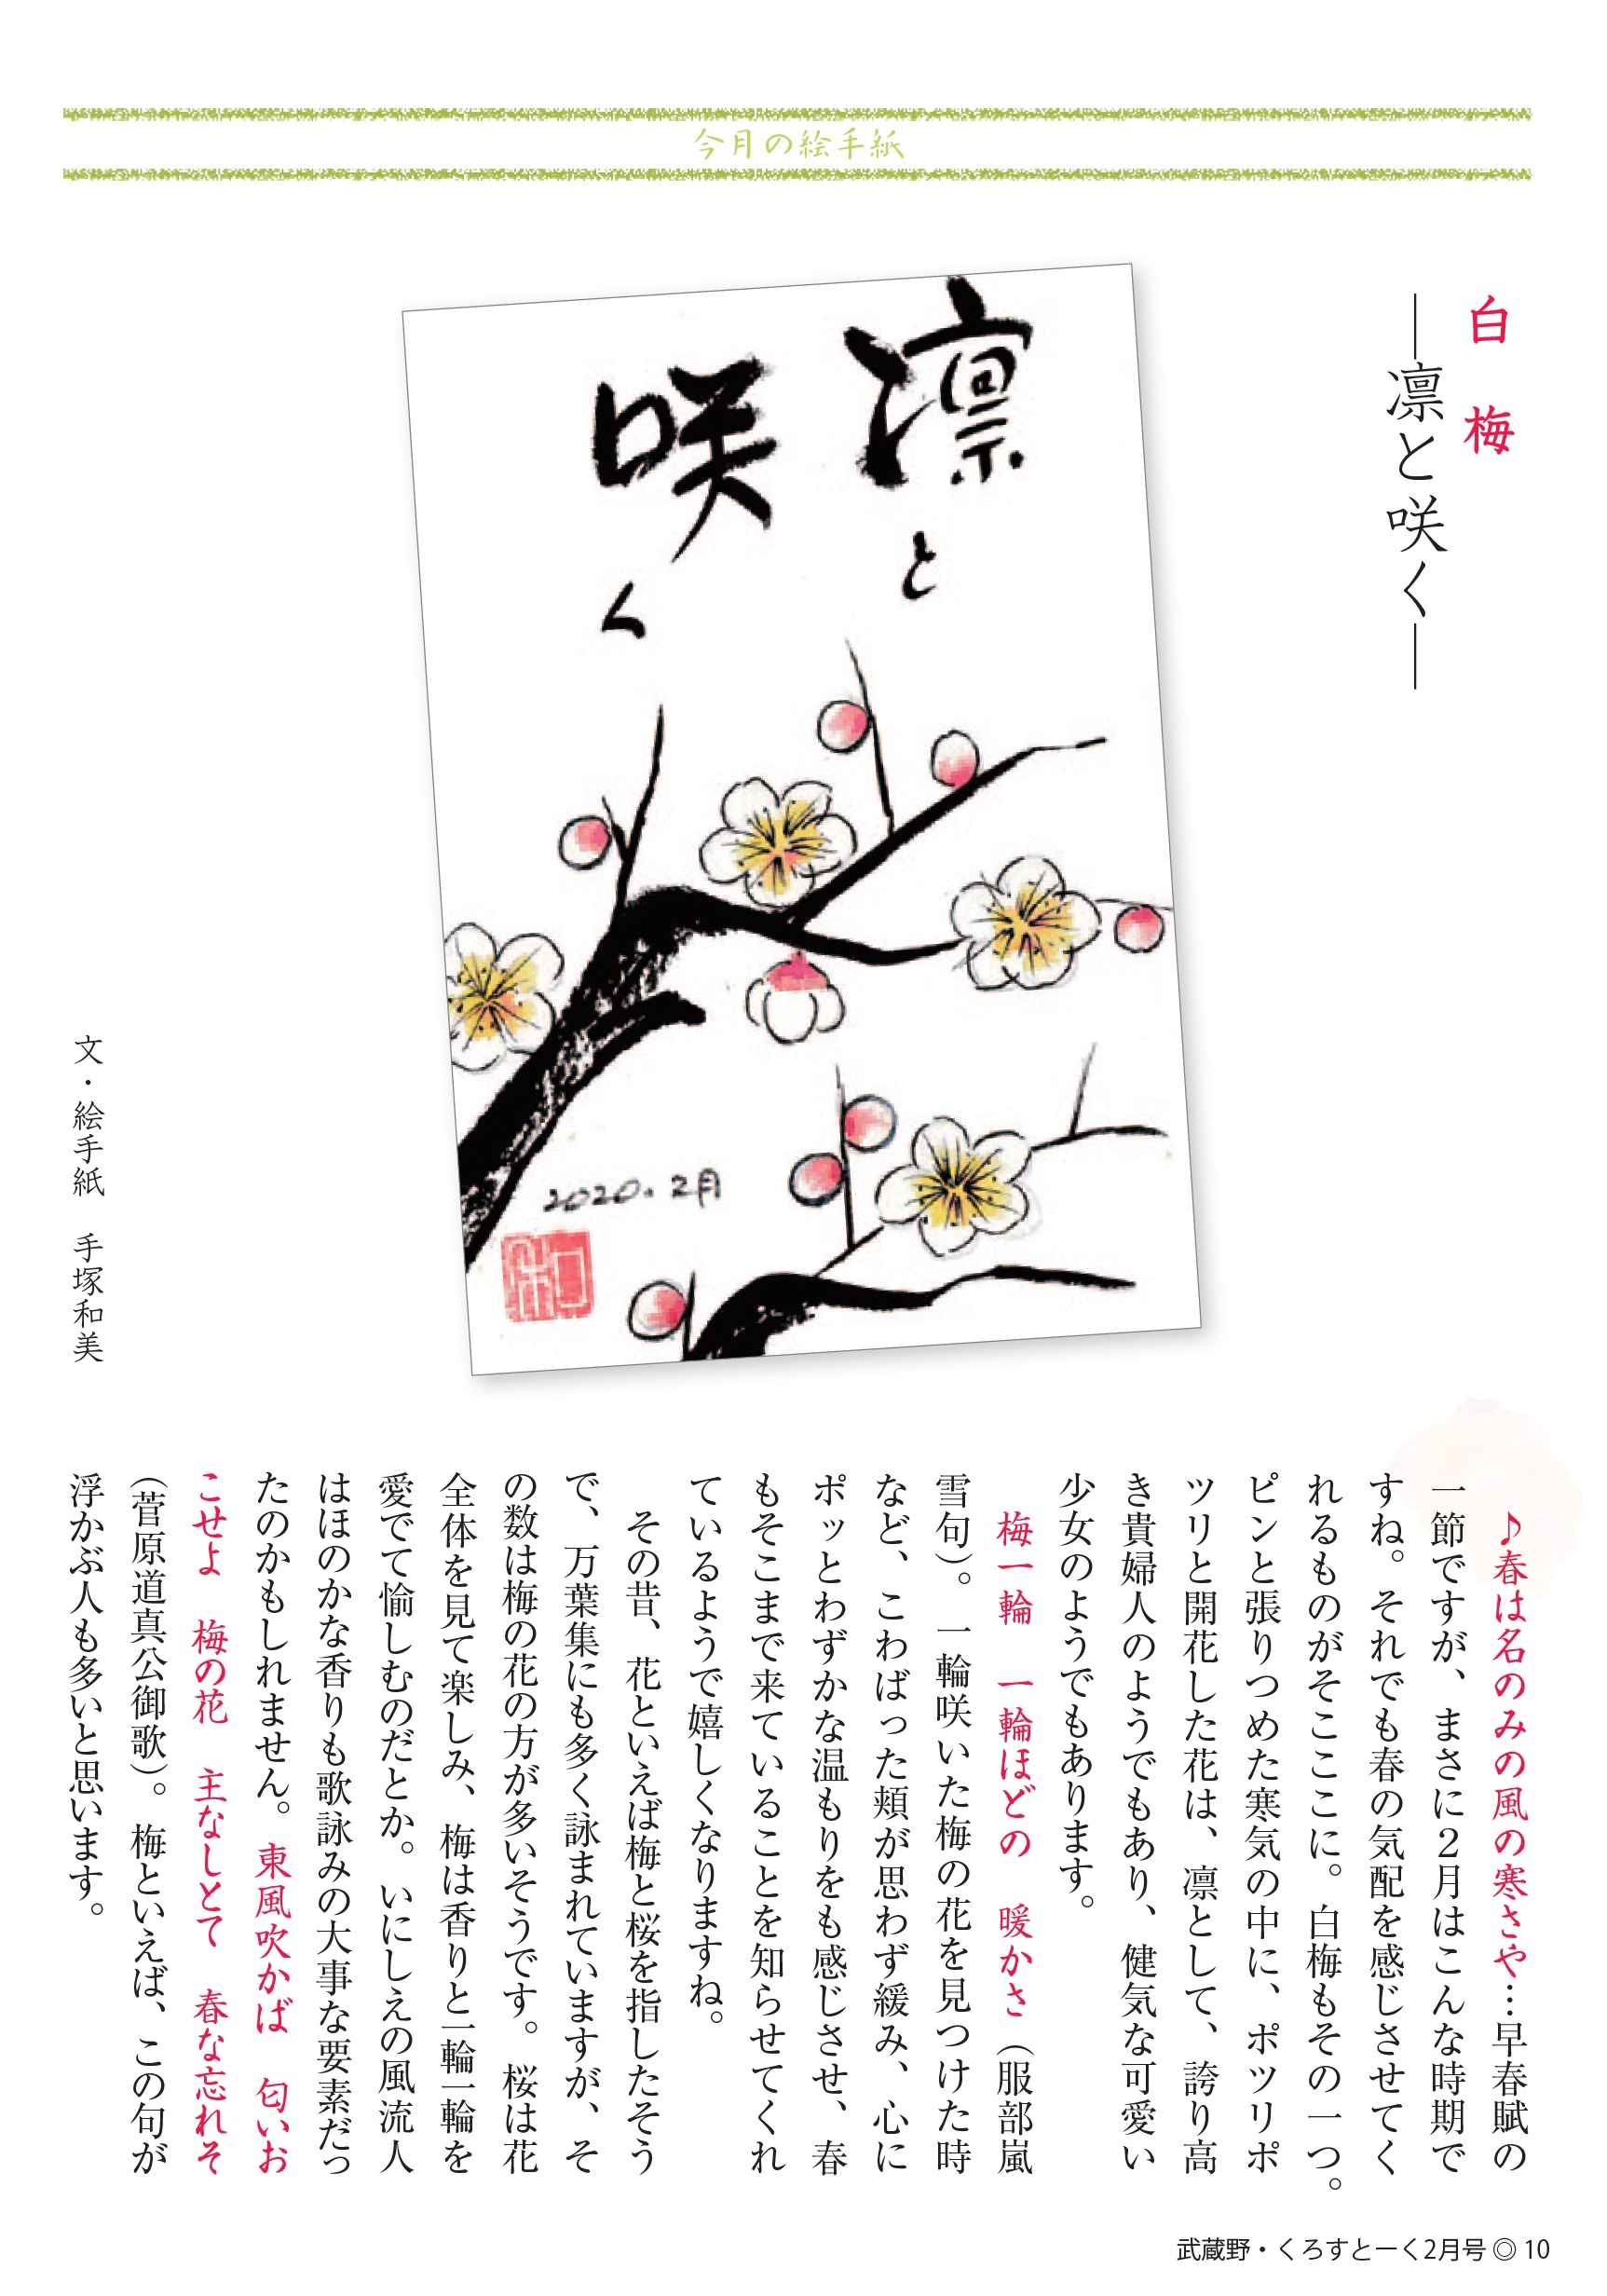 今月の絵手紙
白梅
―凛と咲く―
凛と
咲く
2020.2月
文・絵手紙　手塚和美
♪春は名のみの風の寒さや…早春賦の
一節ですが、まさに2月はこんな時期で
すね。それでも春の気配を感じさせてく
れるものがそこここに。白梅もその一つ。
ピンと張りつめた寒気の中に、ポツリポ
ツリと開花した花は、凛として、誇り高
き貴婦人のようでもあり、健気な可愛い
少女のようでもあります。
梅一輪　一輪ほどの　暖かさ（服部嵐
雪句）。一輪咲いた梅の花を見つけた時
など、こわばった頬が思わず緩み、心に
ポッとわずかな温もりをも感じさせ、春
もそこまで来ていることを知らせてくれ
ているようで嬉しくなりますね。
その昔、花といえば梅と桜を指したそう
で、万葉集にも多く詠まれていますが、そ
の数は梅の花の方が多いそうです。桜は花
全体を見て楽しみ、梅は香りと一輪一輪を
愛でて愉しむのだとか。いにしえの風流人
はほのかな香りも歌詠みの大事な要素だっ
たのかもしれません。東風吹かば　匂いお
こせよ　梅の花　主なしとて　春な忘れそ
（菅原道真公御歌）。梅といえば、この句が
浮かぶ人も多いと思います。
武蔵野・くろすとーく2月号 ◎ 10